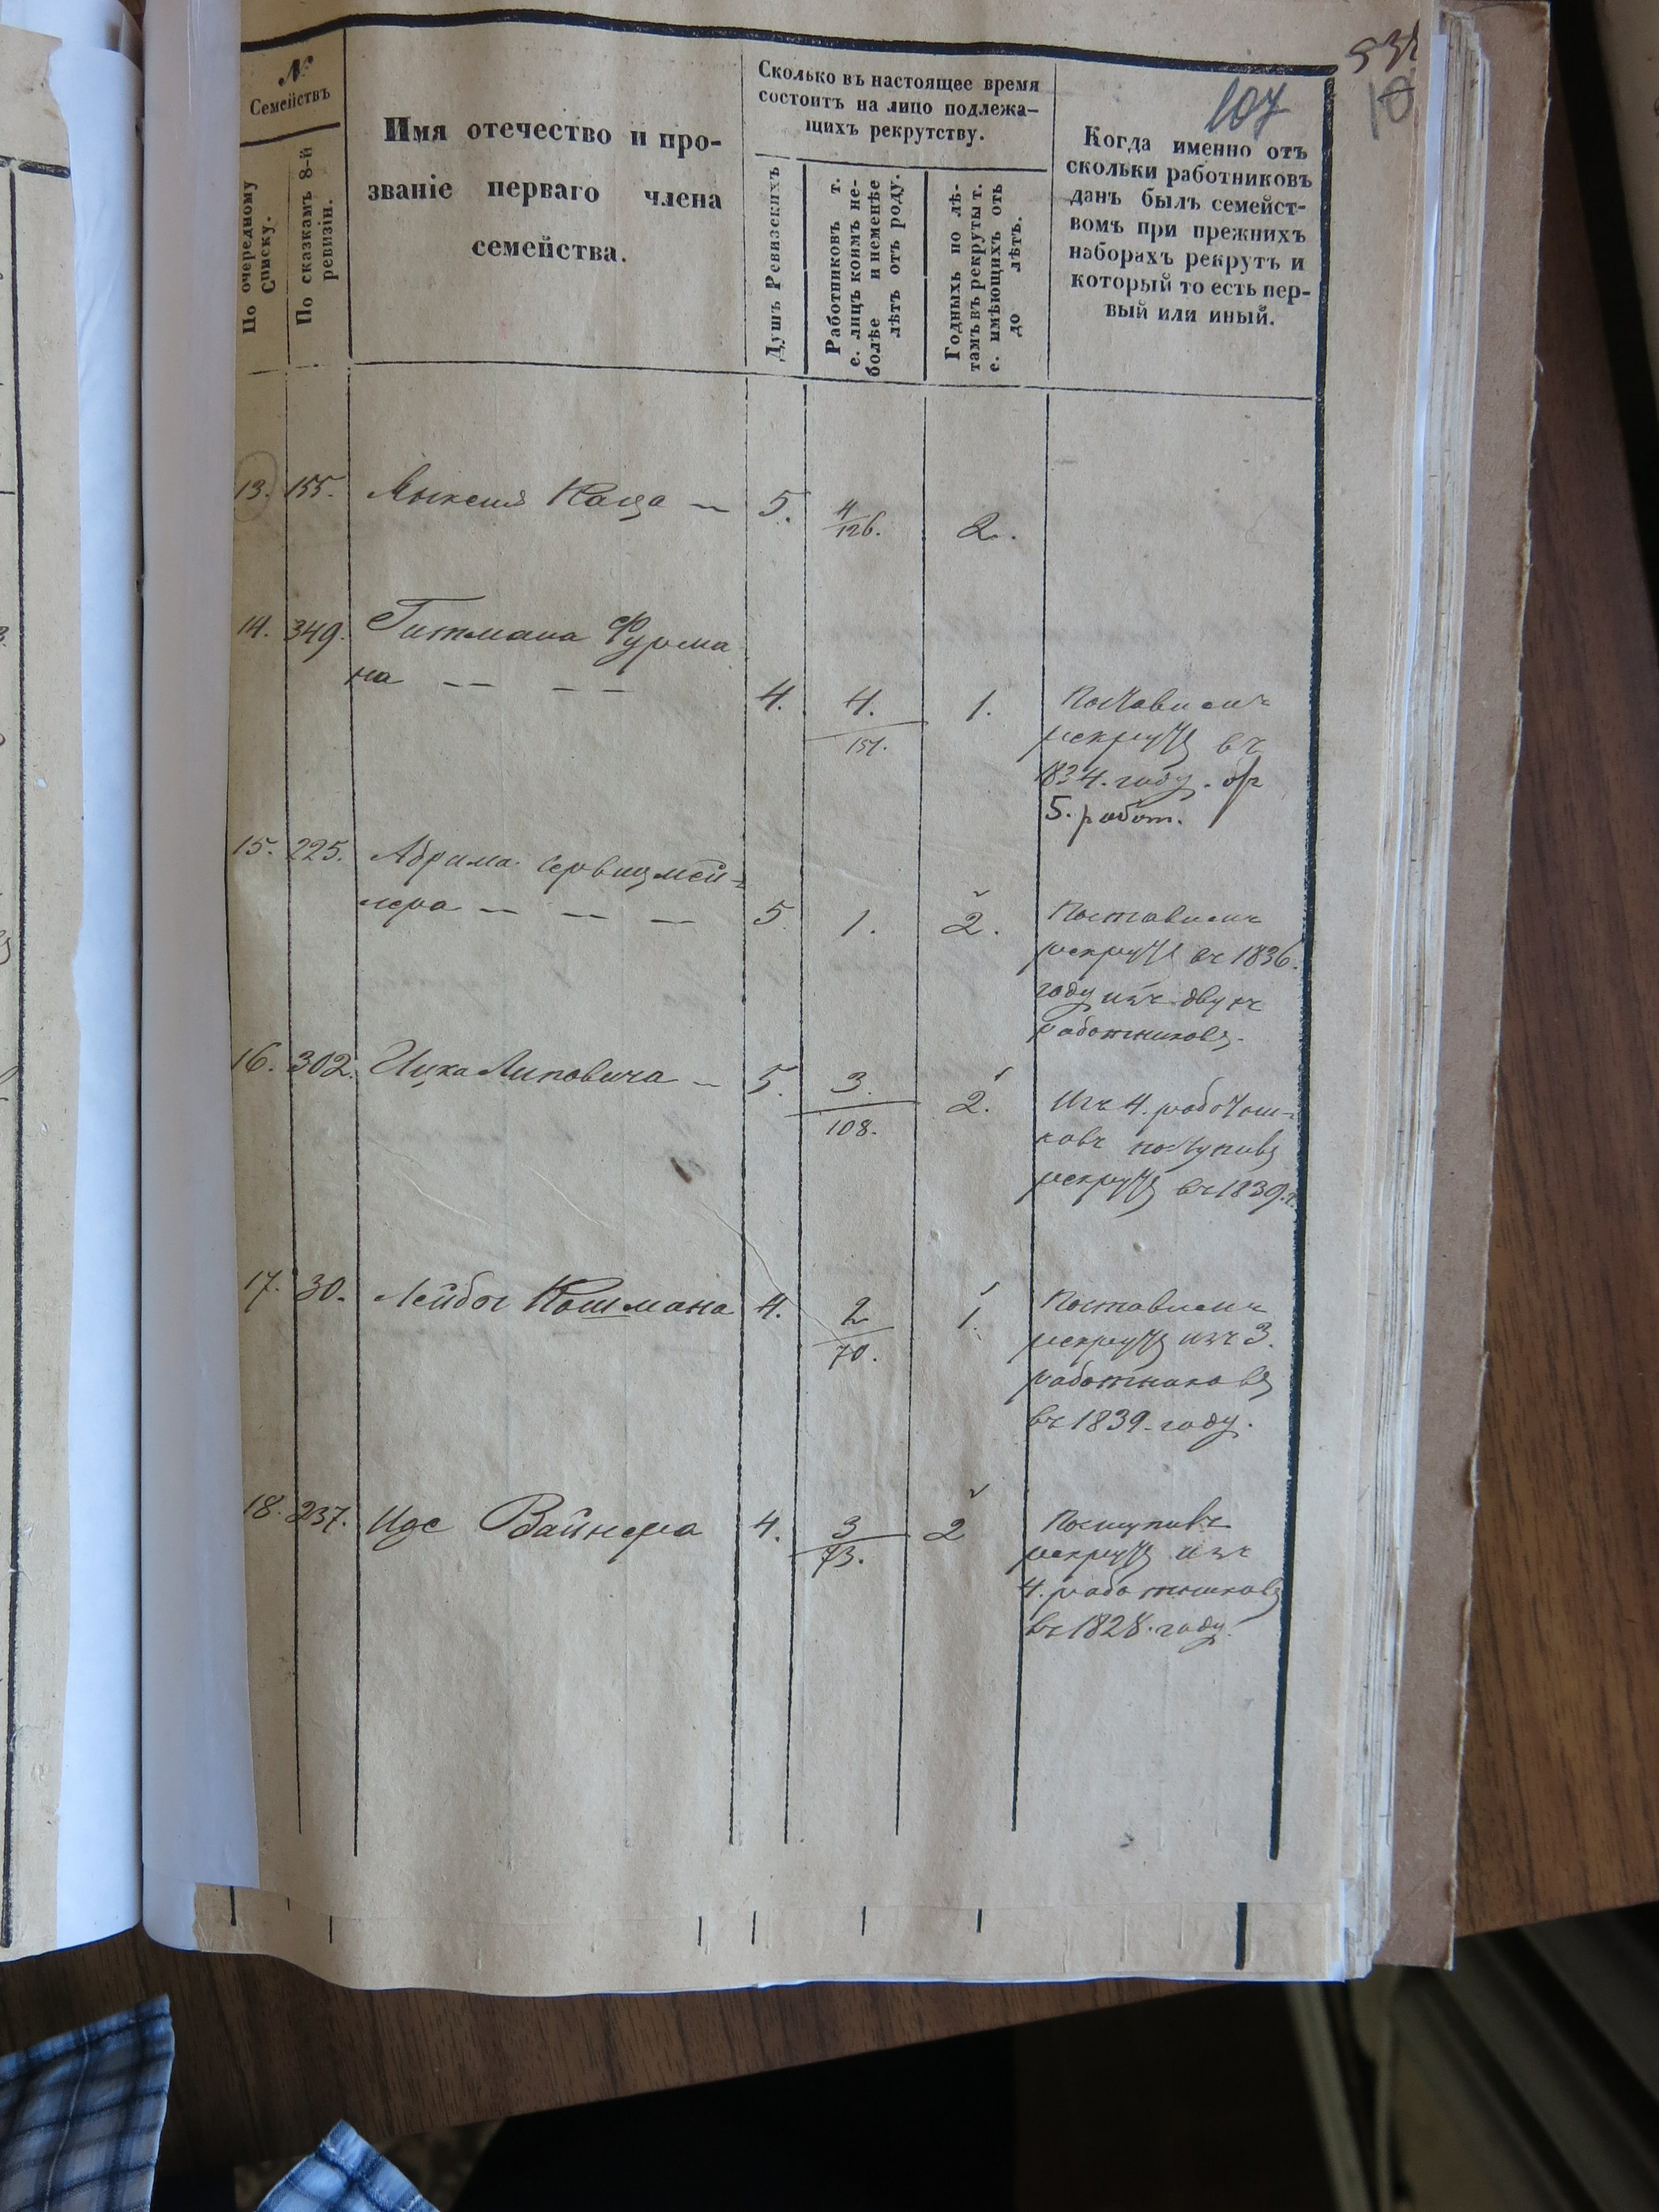 107
№
Семействъ
По очередному
Списку.
По сказкамъ 8-й
ревизіи.
Имя отечество и про-
званіе перваго члена
семейства.
Сколько въ настоящее время
состоитъ на лицо подлежа-
щихъ рекрутству.
Душъ Ревизскихъ
Работниковъ т.
е. лицъ коимъ не-
болѣе и неменѣе
лѣтъ отъ роду.
Годныхъ по лѣ-
тамъ въ рекруты т.
е. имѣющихъ отъ
до лѣтъ.
Когда именно отъ
сколько работниковъ
данъ былъ семейст-
вомъ при прежнихъ
наборахъ рекрутъ и
который то есть пер-
вый или иный.
13. 155. Каца 5. 4/126. 2.
14. 349. Гитмана Фурма
на 4. 4./151. 1. Поставилъ
рекрута въ
1834. году. отъ
5. работ.
15. 225. Абрама
лера 5. 1. 2. Поставилъ
рекрута въ 1836.
году изъ двухъ
работниковъ.
16. 302. Ицка Липовича 5. 3./108. 2. Изъ 4. работни-
ковъ поступивъ
рекрутъ въ 1839. г.
17. 30. Лейбы Кошмана 4. 2/70. 1. Поставилъ
рекрута изъ 3.
работниковъ
въ 1839. году.
18. 237. Вайнера 4. 3/73. 2 Поступивъ
рекрутъ изъ
4. работниковъ
въ 1828. году.